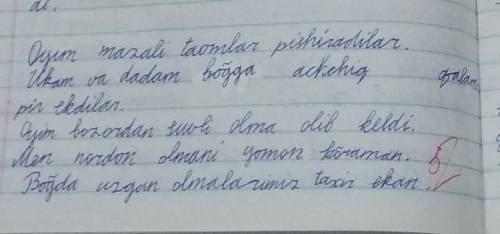 di.
Oyim mazali taomlar pishiradilar.
Ukam va dadam boğga achchiq qalam
pir ekdilar.
Oyim bozordan suvli olma olib keldi.
Men nordon olmani yomon köraman.
Boğda uzgan olmalarimiz taxir ekan.
5